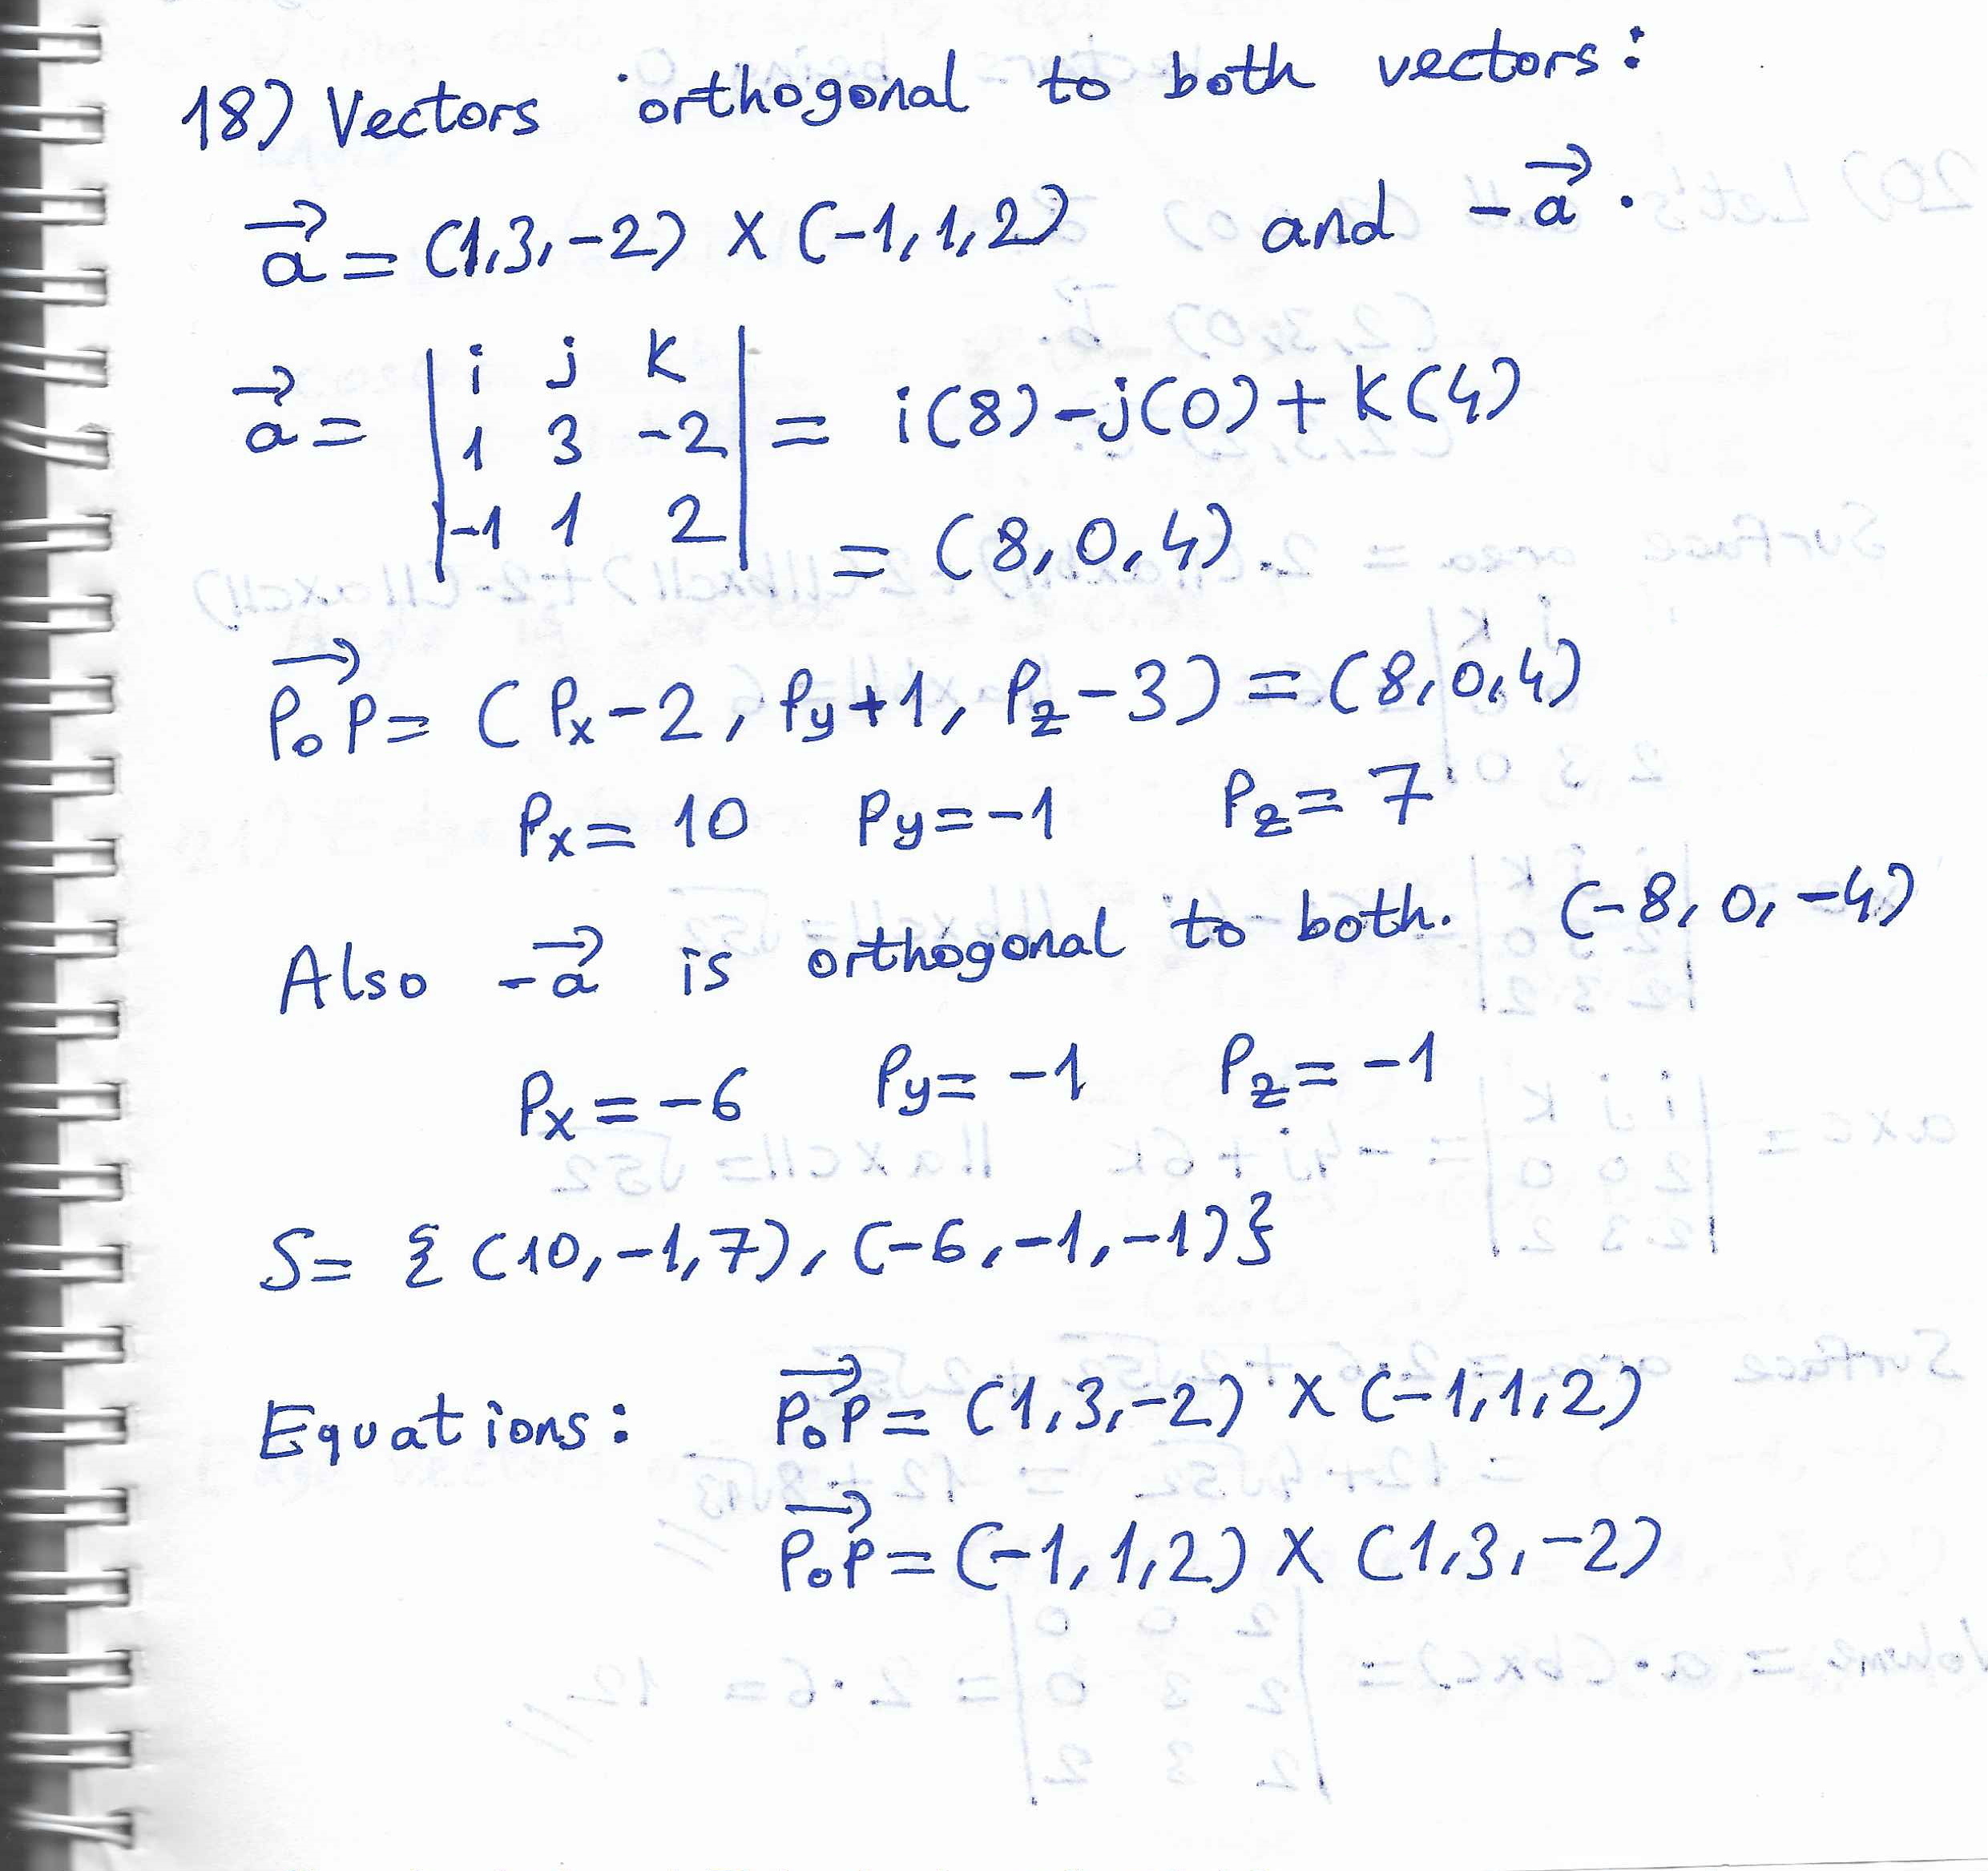 18) Vectors orthogonal to both vectors:
a⃗ = (1,3,-2) x (-1,1,2) and -a⃗.
a⃗ = | i j k | = i(8)-j(0)+k(4)
1 3 -2
-1 1 2
= (8,0,4)
P₀P⃗ = (Px-2, Py+1, Pz-3) = (8,0,4)
Px = 10 Py = -1 Pz = 7
Also -a⃗ is orthogonal to both. (-8,0,-4)
Px = -6 Py = -1 Pz = -1
S = {(10,-1,7), (-6,-1,-1)}
Equations: P₀P⃗ = (1,3,-2) x (-1,1,2)
P₀P⃗ = (-1,1,2) x (1,3,-2)